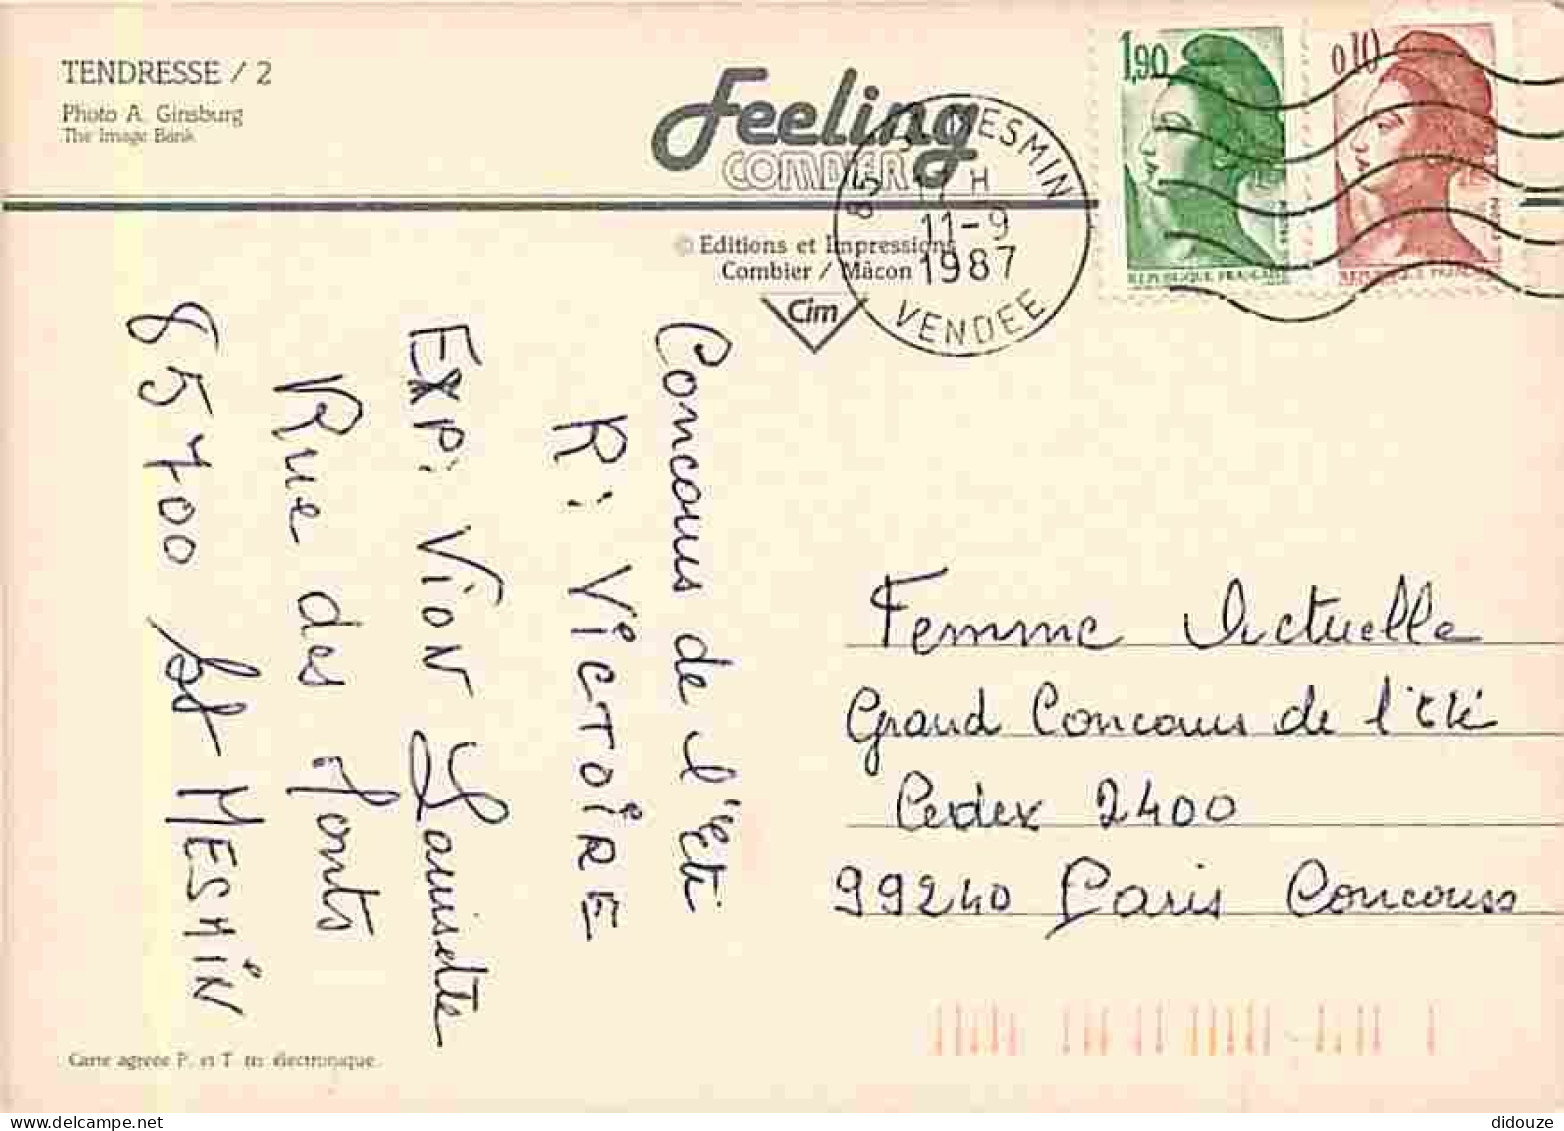 TENDRESSE / 2
Photo A. Ginsburg
The Image Bank
Feeling
COMBIER
© Editions et Impressions
Combier / Mâcon
Cim
85 ST MESMIN
17 H
11-9
1987
VENDEE
1,90
REPUBLIQUE FRANÇAISE
0,10
REPUBLIQUE FRANÇAISE
Concours de l'Eté
R: VICTOIRE
EXP: Vion Louisette
Rue des Monts
85700 St MESMIN
Femme Actuelle
Grand Concours de l'Eté
Cedex 2400
99240 Paris Concours
Carte agréée P. et T. tri électronique.
didouze